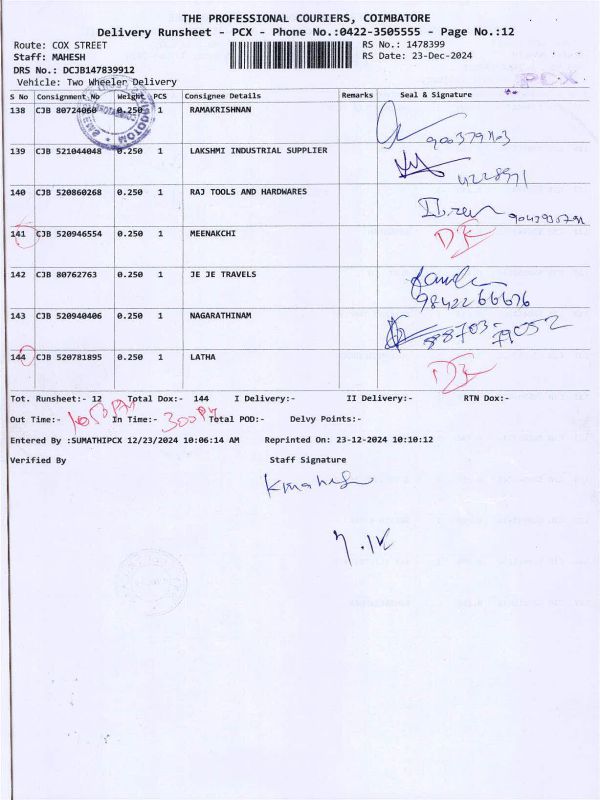 THE PROFESSIONAL COURIERS, COIMBATORE
Delivery Runsheet - PCX - Phone No.:0422-3505555 - Page No.:12
Route: COX STREET RS No.: 1478399
Staff: MAHESH RS Date: 23-Dec-2024
DRS No.: DCJB147839912
Vehicle: Two Wheeler Delivery PCX
S No Consignment.No Weight PCS Consignee Details Remarks Seal & Signature
138 CJB 80724060 0.250 1 RAMAKRISHNAN
139 CJB 521044048 0.250 1 LAKSHMI INDUSTRIAL SUPPLIER
140 CJB 520860268 0.250 1 RAJ TOOLS AND HARDWARES
141 CJB 520946554 0.250 1 MEENAKCHI
142 CJB 80762763 0.250 1 JE JE TRAVELS
9842266626
143 CJB 520940406 0.250 1 NAGARATHINAM
88703-79052
144 CJB 520781895 0.250 1 LATHA
Tot. Runsheet:- 12 Total Dox:- 144 I Delivery:- II Delivery:- RTN Dox:-
Out Time:- In Time:- 300 PM Total POD:- Delvy Points:-
Entered By :SUMATHIPCX 12/23/2024 10:06:14 AM Reprinted On: 23-12-2024 10:10:12
Verified By Staff Signature